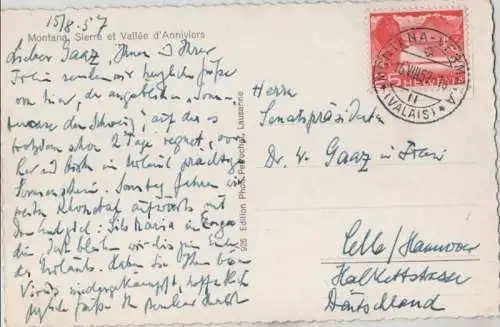 15/8.57
Montana, Sierre et Vallée d'Anniviers
Lieber Gaaz, Ihnen u Ihrer
Frau senden wir herzliche Grüße
von hier, der angeblichen "Sonnen-
terrasse der Schweiz", auf der es
trotzdem schon 2 Tage regnet,
Sonnenschein. Sonntag fahren wir
weiter Rhonetal aufwärts mit
dem Endziel: Sils Maria im Engadin
Dort bleiben wir bis zum Ende
des Urlaubs. Haben Sie Ihren bösen
Virus niedergekämpft, hoffentlich
926 Edition Phot. Perrochet, Lausanne
MONTANA-VERMALA
(VALAIS)
II
HELVETIA
Herrn
Senatspräsidenten
Dr. W. Gaaz u Frau
Celle/Hannover
Halkettstrasse
Deutschland